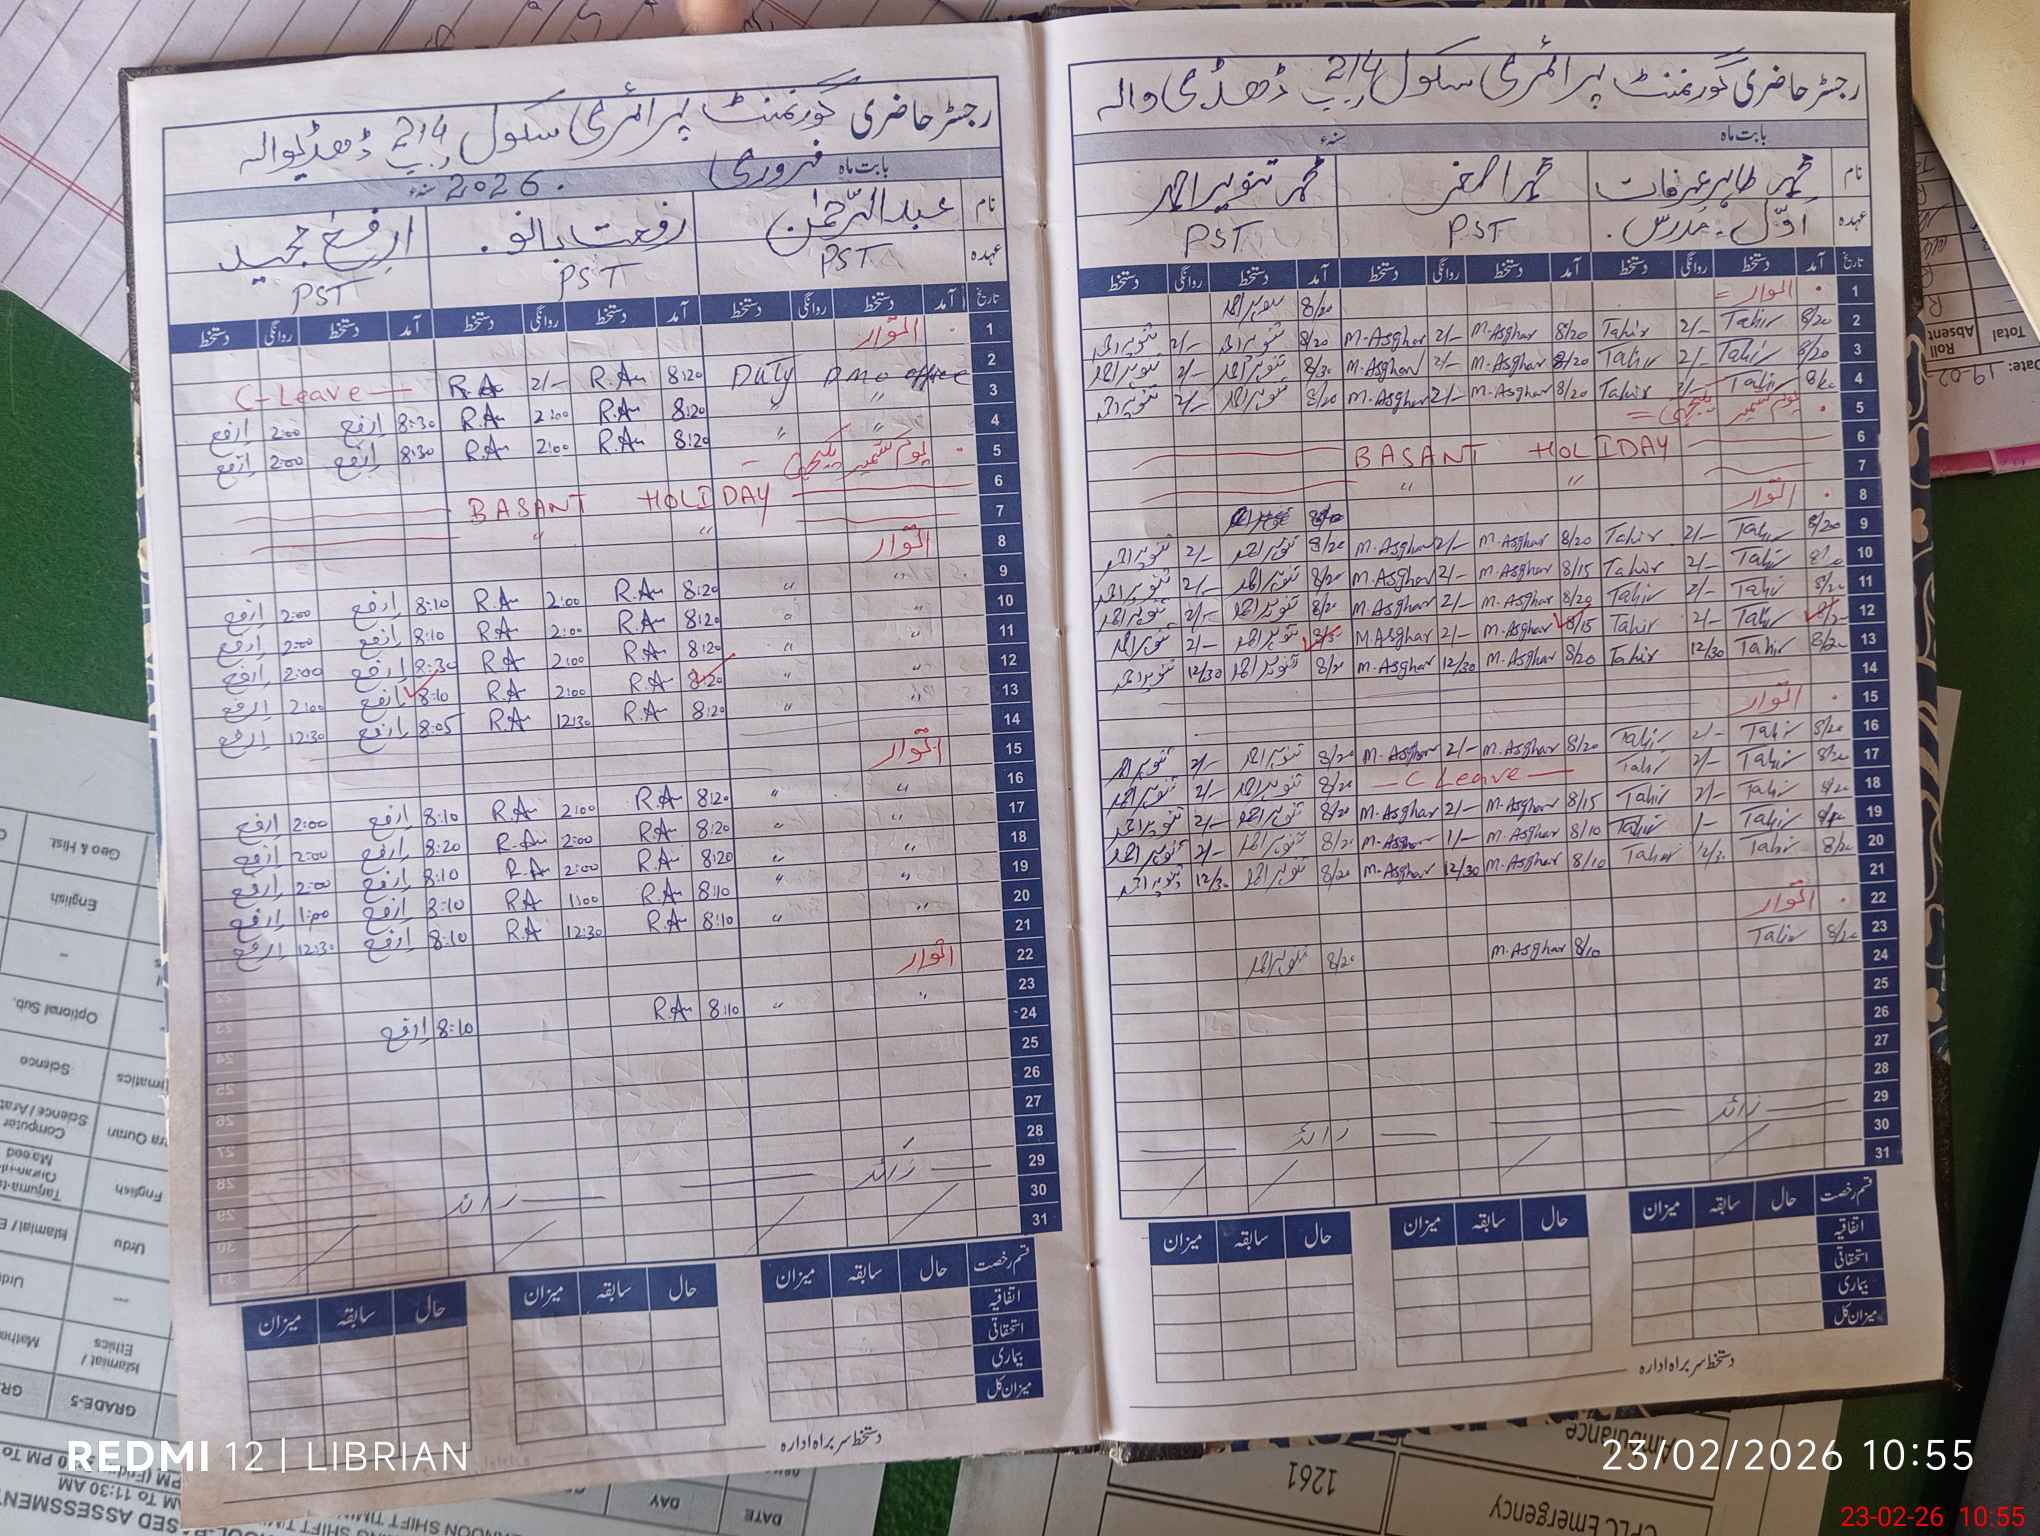 رجسٹر حاضری گورنمنٹ پرائمری سکول 214 ر ب ڈھڈیوالہ
بابت ماہ فروری 2026 سنہء
نام عبدالرّحمٰن رفعت بانو ارفع مجید
عہدہ PST PST PST
تاریخ آمد دستخط روانگی دستخط آمد دستخط روانگی دستخط آمد دستخط روانگی دستخط
1 اتوار
2 Duty DMO office 8:20 R.A 2/- R.A C-Leave
3 " " 8:20 R.A 2:00 R.A 8:30 ارفع 2:00 ارفع
4 " 8:20 R.A 2:00 R.A 8:30 ارفع 2:00 ارفع
5 یوم کشمیر یکجہتی
6 BASANT HOLIDAY
7 " "
8 اتوار
9 " " 8:20 R.A 2:00 R.A 8:10 ارفع 2:00 ارفع
10 " 8:20 R.A 2:00 R.A 8:10 ارفع 2:00 ارفع
11 " " 8:20 R.A 2:00 R.A 8:30 ارفع 2:00 ارفع
12 " " 8:20 R.A 2:00 R.A 8:10 ارفع 2:00 ارفع
13 " " 8:20 R.A 12:30 R.A 8:05 ارفع 12:30 ارفع
14
15 اتوار
16 " " 8:20 R.A 2:00 R.A 8:10 ارفع 2:00 ارفع
17 " " 8:20 R.A 2:00 R.A 8:20 ارفع 2:00 ارفع
18 " " 8:20 R.A 2:00 R.A 8:10 ارفع 2:00 ارفع
19 " " 8:10 R.A 1:00 R.A 8:10 ارفع 1:00 ارفع
20 " " 8:10 R.A 12:30 R.A 8:10 ارفع 12:30 ارفع
21
22 اتوار
23 " " 8:10 R.A 8:10 ارفع
24
25
26
27
28
29 زائد زائد
30
31
قسم رخصت حال سابقہ میزان حال سابقہ میزان حال سابقہ میزان
اتفاقیہ
استحقاقی
بیماری
میزان کل
دستخط سربراہ ادارہ
رجسٹر حاضری گورنمنٹ پرائمری سکول 214 ر ب ڈھڈی والہ
بابت ماہ سنہء
نام محمد طاہر عرفات محمد اصغر محمد تنویر احمد
عہدہ اوّل مدرس PST PST
تاریخ آمد دستخط روانگی دستخط آمد دستخط روانگی دستخط آمد دستخط روانگی دستخط
1 اتوار 8/20 تنویر احمد
2 8/20 Tahir 2/- Tahir 8/20 M-Asghar 2/- M-Asghar 8/20 تنویر احمد 2/- تنویر احمد
3 8/20 Tahir 2/- Tahir 8/20 M-Asghar 2/- M-Asghar 8/30 تنویر احمد 2/- تنویر احمد
4 8/20 Tahir 2/- Tahir 8/20 M-Asghar 2/- M-Asghar 8/20 تنویر احمد 2/- تنویر احمد
5 یوم کشمیر یکجہتی
6 BASANT HOLIDAY
7 " "
8 اتوار
9 8/20 Tahir 2/- Tahir 8/20 M-Asghar 2/- M-Asghar 8/20 تنویر احمد 2/- تنویر احمد
10 8/20 Tahir 2/- Tahir 8/15 M-Asghar 2/- M-Asghar 8/20 تنویر احمد 2/- تنویر احمد
11 8/20 Tahir 2/- Tahir 8/20 M-Asghar 2/- M-Asghar 8/20 تنویر احمد 2/- تنویر احمد
12 Tahir 2/- Tahir 8/15 M-Asghar 2/- M Asghar تنویر احمد 2/- تنویر احمد
13 8/20 Tahir 12/30 Tahir 8/20 M-Asghar 12/30 M-Asghar 8/20 تنویر احمد 12/30 تنویر احمد
14
15 اتوار
16 8/20 Tahir 2/- Tahir 8/20 M-Asghar 2/- M-Asghar 8/20 تنویر احمد 2/- تنویر احمد
17 8/20 Tahir 2/- Tahir C Leave 8/20 تنویر احمد 2/- تنویر احمد
18 8/20 Tahir 2/- Tahir 8/15 M-Asghar 2/- M-Asghar 8/20 تنویر احمد 2/- تنویر احمد
19 Tahir 1/- Tahir 8/10 M-Asghar 1/- M-Asghar 8/20 تنویر احمد 2/- تنویر احمد
20 8/20 Tahir 12/30 Tahir 8/10 M-Asghar 12/30 M-Asghar 8/20 تنویر احمد 12/30 تنویر احمد
21
22 اتوار
23 8/20 Tahir 8/10 M-Asghar 8/20 تنویر احمد
24
25
26
27
28
29 زائد زائد
30
31
قسم رخصت حال سابقہ میزان حال سابقہ میزان حال سابقہ میزان
اتفاقیہ
استحقاقی
بیماری
میزان کل
دستخط سربراہ ادارہ
Total
Roll
Absent
Date: 19-02
Geo & Hist.
English
Optional Sub.
Science
Computer Science / Arab
English
Urdu
Islamiat /
Ethics
GRADE-5
DATE
DAY
Ambulance
1261
CPLC Emergency
REDMI 12 | LIBRIAN
23/02/2026 10:55
23-02-26 10:55